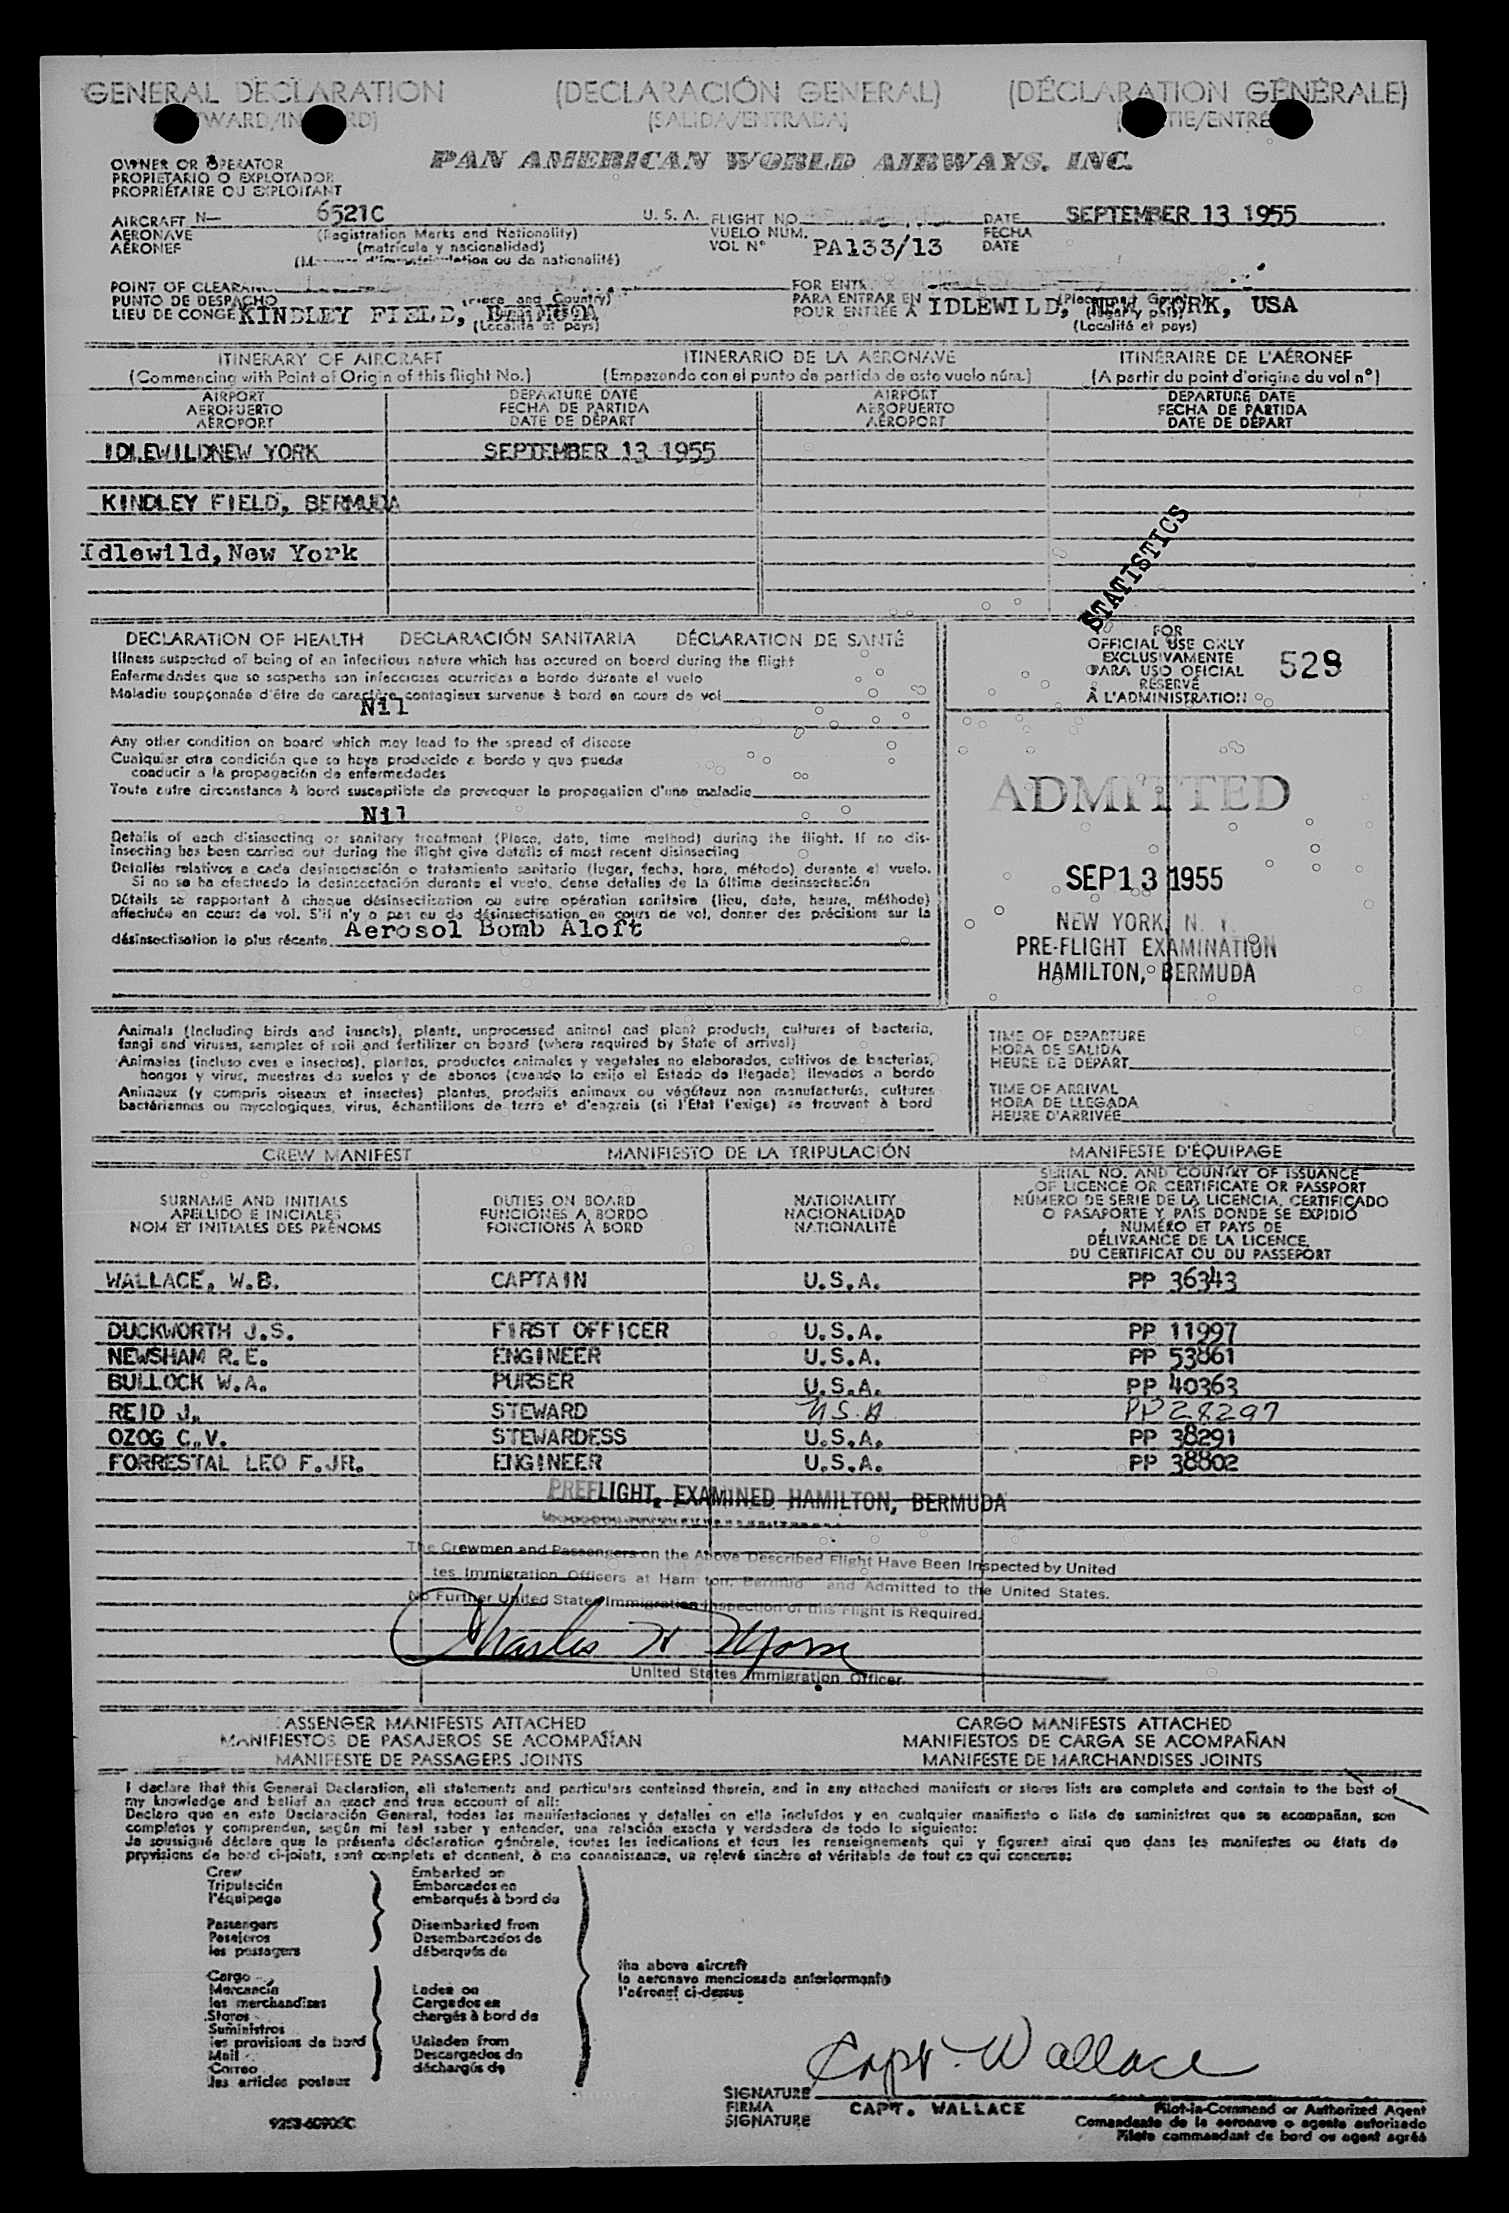 GENERAL DECLARATION (DECLARACIÓN GENERAL) (DÉCLARATION GÉNÉRALE)
(SALIDA/ENTRADA)
PAN AMERICAN WORLD AIRWAYS, INC.
OWNER OR OPERATOR
PROPIETARIO O EXPLOTADOR
PROPRIÉTAIRE OU EXPLOITANT
AIRCRAFT N— 6521C U. S. A. FLIGHT NO. DATE SEPTEMBER 13 1955
AERONAVE (Registration Marks and Nationality) VUELO NUM. FECHA
AÉRONEF (matrícula y nacionalidad) VOL Nº PA133/13 DATE
ou de nationalité)
POINT OF CLEARANCE FOR ENTRY
PUNTO DE DESPACHO (Place and Country) PARA ENTRAR EN
LIEU DE CONGÉ KINDLEY FIELD, BERMUDA POUR ENTRÉE À IDLEWILD, NEW YORK, USA
(Localité et pays) (Localité et pays)
ITINERARY OF AIRCRAFT ITINERARIO DE LA AERONAVE ITINÉRAIRE DE L'AÉRONEF
(Commencing with Point of Origin of this flight No.) (Empezando con el punto de partida de este vuelo núm.) (A partir du point d'origine du vol nº)
AIRPORT DEPARTURE DATE AIRPORT DEPARTURE DATE
AEROPUERTO FECHA DE PARTIDA AEROPUERTO FECHA DE PARTIDA
AÉROPORT DATE DE DÉPART AÉROPORT DATE DE DÉPART
IDLEWILDNEW YORK SEPTEMBER 13 1955
KINDLEY FIELD, BERMUDA
Idlewild, New York
STATISTICS
DECLARATION OF HEALTH DECLARACIÓN SANITARIA DÉCLARATION DE SANTÉ
Illness suspected of being of an infectious nature which has occured on board during the flight
Enfermedades que se sospecha son infecciosas ocurridas a bordo durante el vuelo
Maladie soupçonnée d'être de caractère contagieux survenue à bord en cours de vol
Nil
Any other condition on board which may lead to the spread of disease
Cualquier otra condición que se haya producido a bordo y que pueda
conducir a la propagación de enfermedades
Toute autre circonstance à bord susceptible de provoquer la propagation d'une maladie
Nil
Details of each disinsecting or sanitary treatment (Place, date, time method) during the flight. If no dis-
insecting has been carried out during the flight give details of most recent disinsecting
Detalles relativos a cada desinsectación o tratamiento sanitario (lugar, fecha, hora, método) durante el vuelo.
Si no se ha efectuado la desinsectación durante el vuelo, dense detalles de la última desinsectación
Détails se rapportant à chaque désinsectisation ou autre opération sanitaire (lieu, date, heure, méthode)
effectuée en cours de vol. S'il n'y a pas eu de désinsectisation en cours de vol, donner des précisions sur la
désinsectisation la plus récente Aerosol Bomb Aloft
FOR
OFFICIAL USE ONLY
EXCLUSIVAMENTE
PARA USO OFICIAL
RÉSERVÉ
À L'ADMINISTRATION
528
ADMITTED
SEP 13 1955
NEW YORK, N. Y.
PRE-FLIGHT EXAMINATION
HAMILTON, BERMUDA
Animals (including birds and insects), plants, unprocessed animal and plant products, cultures of bacteria,
fungi and viruses, samples of soil and fertilizer on board (where required by State of arrival)
Animales (incluso aves e insectos), plantas, productos animales y vegetales no elaborados, cultivos de bacterias,
hongos y virus, muestras de suelos y de abonos (cuando lo exija el Estado de llegada) llevados a bordo
Animaux (y compris oiseaux et insectes) plantes, produits animaux ou végétaux non manufacturés, cultures
bactériennes ou mycologiques, virus, échantillons de terre et d'engrais (si l'Etat l'exige) se trouvant à bord
TIME OF DEPARTURE
HORA DE SALIDA
HEURE DE DÉPART
TIME OF ARRIVAL
HORA DE LLEGADA
HEURE D'ARRIVÉE
CREW MANIFEST MANIFIESTO DE LA TRIPULACIÓN MANIFESTE D'ÉQUIPAGE
SURNAME AND INITIALS
APELLIDO E INICIALES
NOM ET INITIALES DES PRÉNOMS
DUTIES ON BOARD
FUNCIONES A BORDO
FONCTIONS À BORD
NATIONALITY
NACIONALIDAD
NATIONALITÉ
SERIAL NO. AND COUNTRY OF ISSUANCE
OF LICENCE OR CERTIFICATE OR PASSPORT
NÚMERO DE SERIE DE LA LICENCIA, CERTIFICADO
O PASAPORTE Y PAÍS DONDE SE EXPIDIÓ
NUMÉRO ET PAYS DE
DÉLIVRANCE DE LA LICENCE,
DU CERTIFICAT OU DU PASSEPORT
WALLACE, W.B. CAPTAIN U.S.A. PP 36343
DUCKWORTH J.S. FIRST OFFICER U.S.A. PP 11997
NEWSHAM R.E. ENGINEER U.S.A. PP 53861
BULLOCK W.A. PURSER U.S.A. PP 40363
REID J. STEWARD U.S.A PP28297
OZOG C.V. STEWARDESS U.S.A. PP 38291
FORRESTAL LEO F.JR. ENGINEER U.S.A. PP 38802
PREFLIGHT, EXAMINED HAMILTON, BERMUDA
The Crewmen and Passengers on the Above Described Flight Have Been Inspected by United
tes Immigration Officers at Ham ton, Bermud and Admitted to the United States.
No Further United States Immigration Inspection of this Flight is Required.
Charles
United States Immigration Officer.
ASSENGER MANIFESTS ATTACHED CARGO MANIFESTS ATTACHED
MANIFIESTOS DE PASAJEROS SE ACOMPAÑAN MANIFIESTOS DE CARGA SE ACOMPAÑAN
MANIFESTE DE PASSAGERS JOINTS MANIFESTE DE MARCHANDISES JOINTS
I declare that this General Declaration, all statements and particulars contained therein, and in any attached manifests or stores lists are complete and contain to the best of
my knowledge and belief an exact and true account of all:
Declaro que en esta Declaración General, todas las manifestaciones y detalles en ella incluídos y en cualquier manifiesto o lista de suministros que se acompañan, son
completos y comprenden, según mi leal saber y entender, una relación exacta y verdadera de todo lo siguiente:
Je soussigné déclare que la présente déclaration générale, toutes les indications et tous les renseignements qui y figurent ainsi que dans les manifestes ou états de
provisions de bord ci-joints, sont complets et donnent, à ma connaissance, un relevé sincère et véritable de tout ce qui concerne:
Crew Embarked on
Tripulación Embarcados en
l'équipage embarqués à bord de
Passengers Disembarked from
Pasajeros Desembarcados de
les passagers débarqués de
the above aircraft
la aeronave mencionada anteriormente
l'aéronef ci-dessus
Cargo
Mercancía Laden on
les merchandises Cargados en
Stores chargés à bord de
Suministros
les provisions de bord Unladen from
Mail Descargados de
Correo déchargés de
les articles postaux
Capt. Wallace
SIGNATURE
FIRMA CAPT. WALLACE Pilot-in-Command or Authorized Agent
SIGNATURE Comandante de la aeronave o agente autorizado
Pilote commandant de bord ou agent agréé